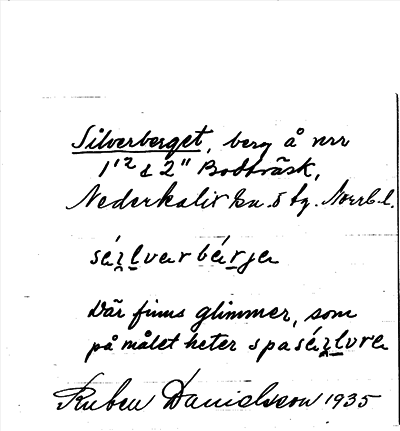 Silverberget, berg å nrr
1¹² & 2" Bodträsk,
Nederkalix sn. o tg. Norrb. l.
sé̱ṟḻvarbárja
Där finns glimmer, som
på målet heter spasé̱ṟḻvre
Ruben Danielsson 1935